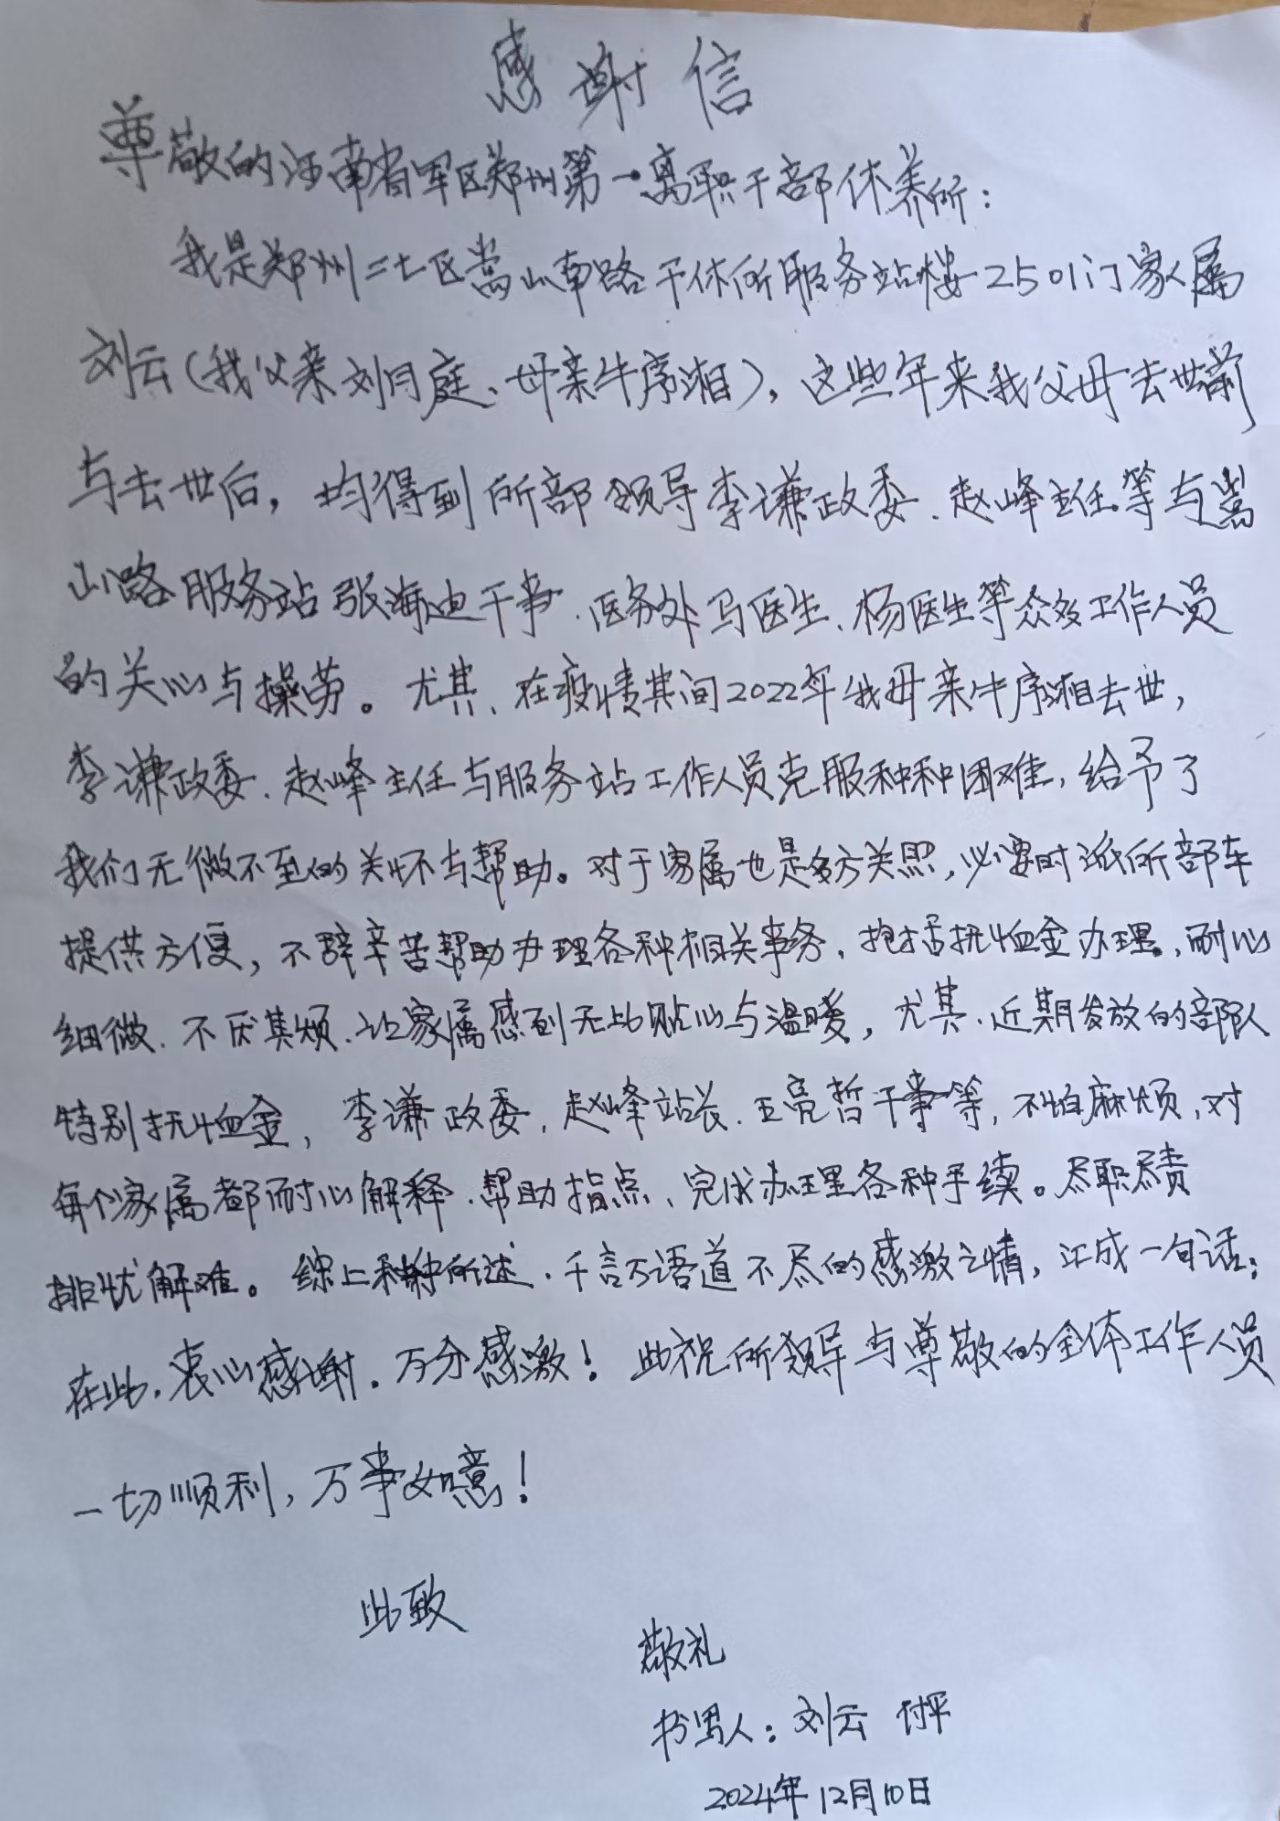 感谢信
尊敬的河南省军区郑州第一离职干部休养所：
我是郑州二七区嵩山南路干休所服务站楼2501门家属
刘云（我父亲刘月庭、母亲牛序湘），这些年来我父母去世前
与去世后，均得到所部领导李谦政委、赵峰主任等与嵩
山路服务站张海迪干事、医务处马医生、杨医生等众多工作人员
的关心与操劳。尤其、在疫情其间2022年我母亲牛序湘去世，
李谦政委、赵峰主任与服务站工作人员克服种种困难，给予了
我们无微不至的关怀与帮助。对于家属也是多方关照，必要时派所部车
提供方便，不辞辛苦帮助办理各种相关事务，抱括抚恤金办理。耐心
细微、不厌其烦、让家属感到无比贴心与温暖，尤其、近期发放的部队
特别抚恤金，李谦政委、赵峰站长、王亮哲干事等，不怕麻烦，对
每个家属都耐心解释、帮助指点、完成办理各种手续。尽职尽责
排忧解难。综上种种所述、千言万语道不尽的感激之情，汇成一句话：
在此，衷心感谢，万分感激！此祝所领导与尊敬的全体工作人员
一切顺利，万事如意！
此致
敬礼
书写人：刘云 付平
2024年12月10日